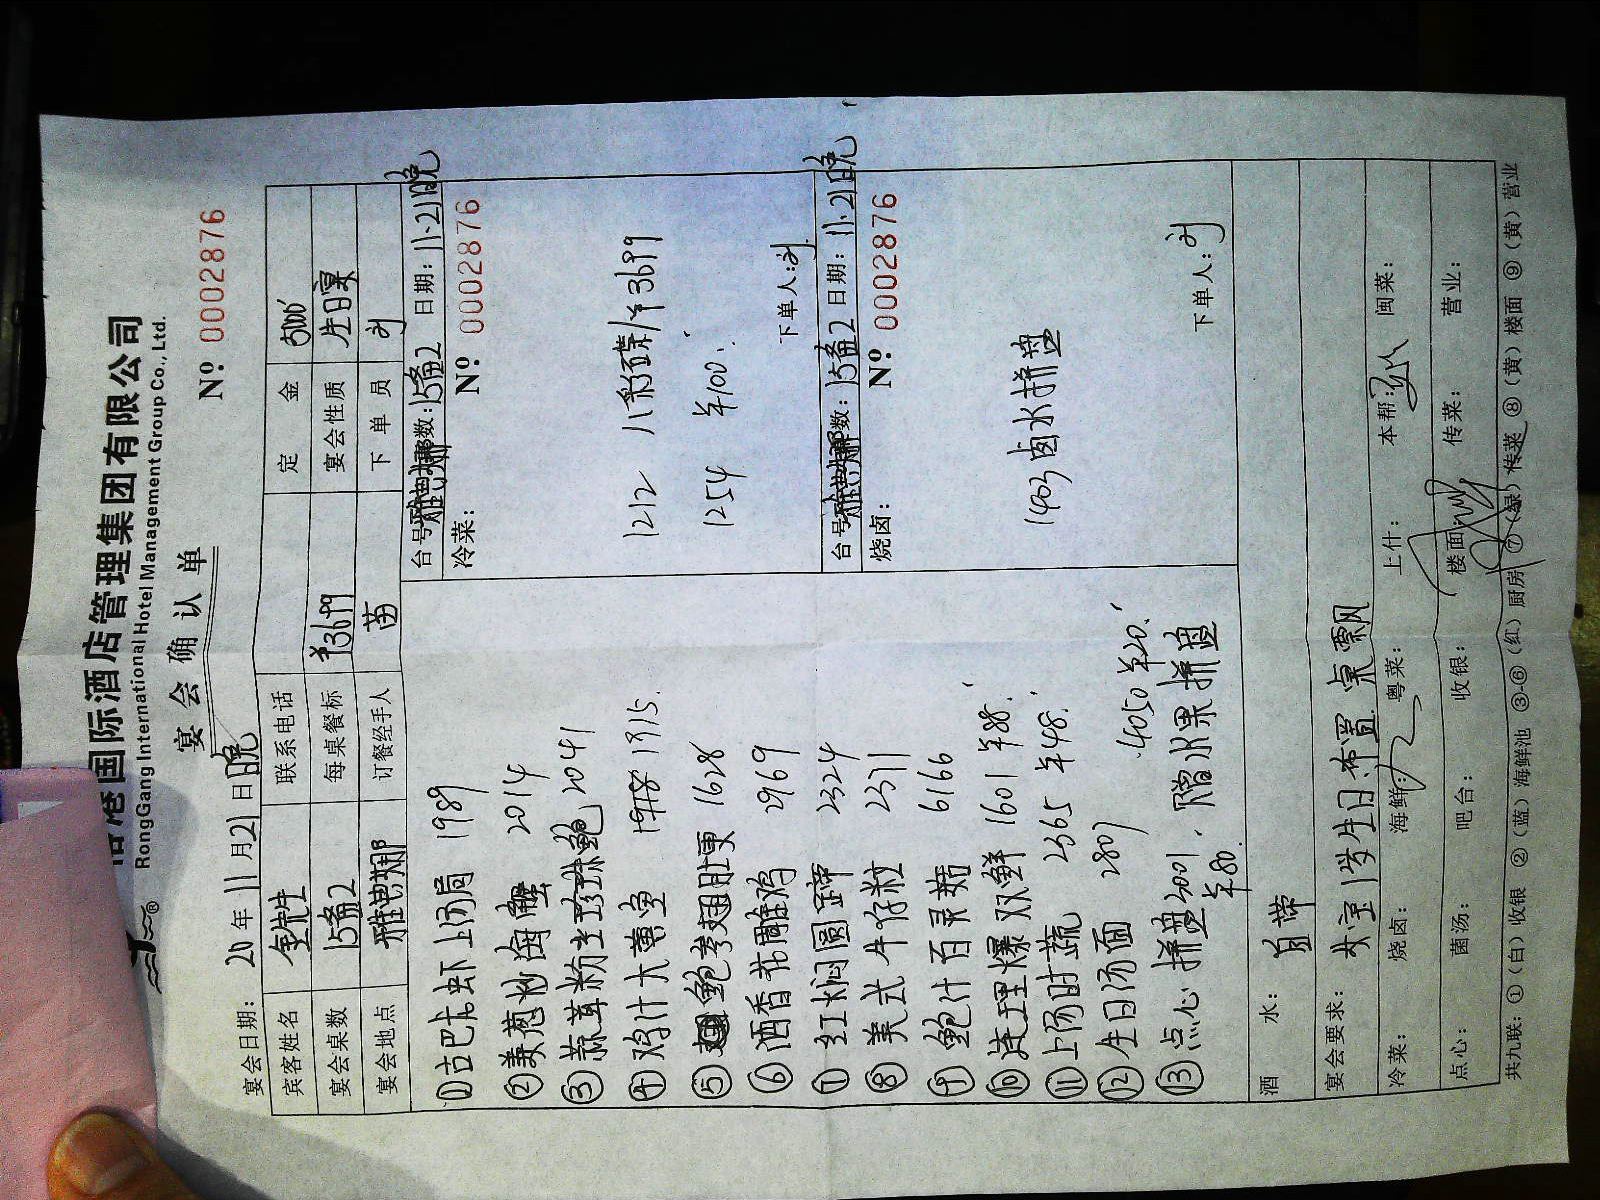 港国际酒店管理集团有限公司
RongGang International Hotel Management Group Co., Ltd.
宴会确认单
宴会日期: 20 年 11 月 21 日晚
Nº 0002876
宾客姓名 联系电话 定金
宴会桌数 15备2 每桌餐标 ¥3699 宴会性质 生日宴
宴会地点 订餐经手人 苗 下单员 刘
①古巴大虾上汤焗 1989
②姜葱炒海蟹 2014
③蒜茸粉丝珍珠鲍 2041
④鸡汁大 1315.
⑤鲍参翅肚更 1628
⑥酒香花雕鸡 2969
⑦红焖圆蹄 2324
⑧美式牛仔粒 2311
⑨鲍汁百灵菇 6166
⑩连理爆双鲜 1601 ¥88.
⑪上汤时蔬 2365 ¥48.
⑫生日汤面 2807 4050 ¥20.
⑬点心拼盘 2001. 赠水果拼盘
¥80.
台号 数: 15备2 日期: 11.21晚
冷菜: Nº 0002876
1212 八彩碟/¥3699
1254 ¥100.
下单人: 刘
台号 数: 15备2 日期: 11.21晚
烧卤: Nº 0002876
1403 卤水拼盘
下单人: 刘
酒水: 自带
宴会要求: 宝1岁生日布置
冷菜: 烧卤: 海鲜: 粤菜: 上什: 本帮: 闽菜:
点心: 菌汤: 吧台: 收银: 楼面: 传菜: 营业:
共九联: ①(白)收银 ②(蓝)海鲜池 ③-⑥(红)厨房 ⑦(绿)传菜 ⑧(黄)楼面 ⑨(黄)营业